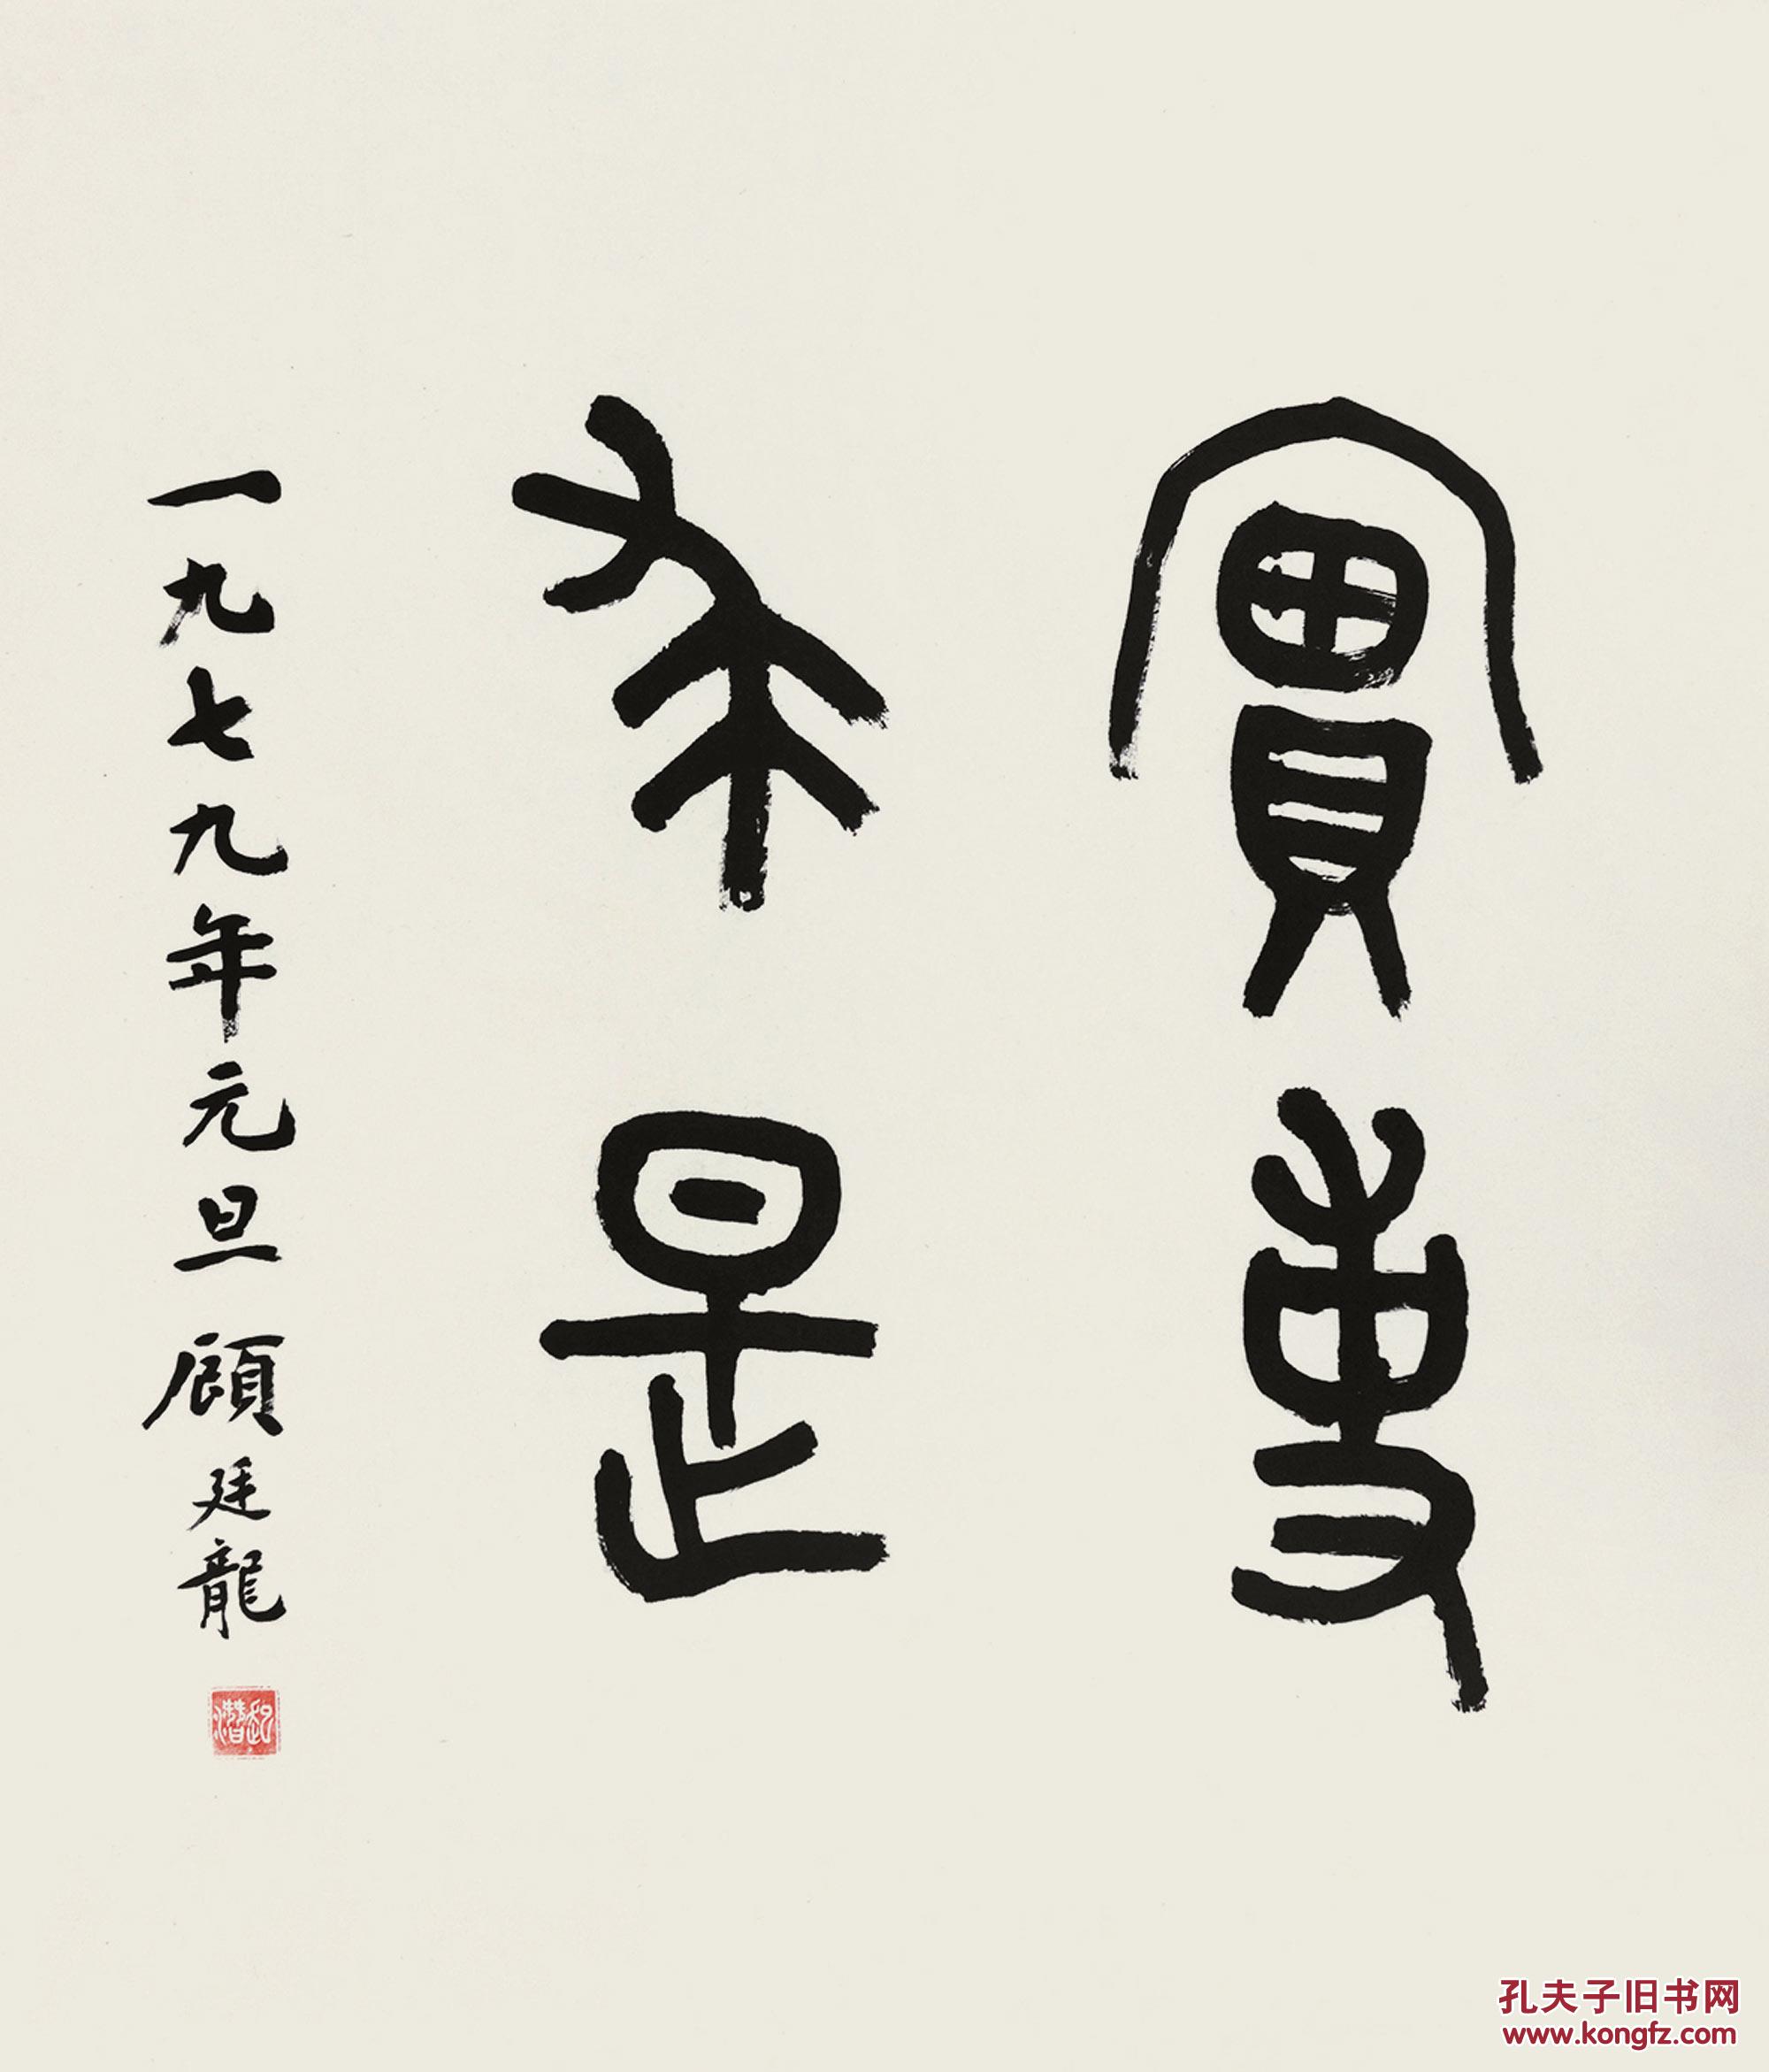 實事
求是
一九七九年元旦 顧廷龍
起潛
孔夫子旧书网
www.kongfz.com